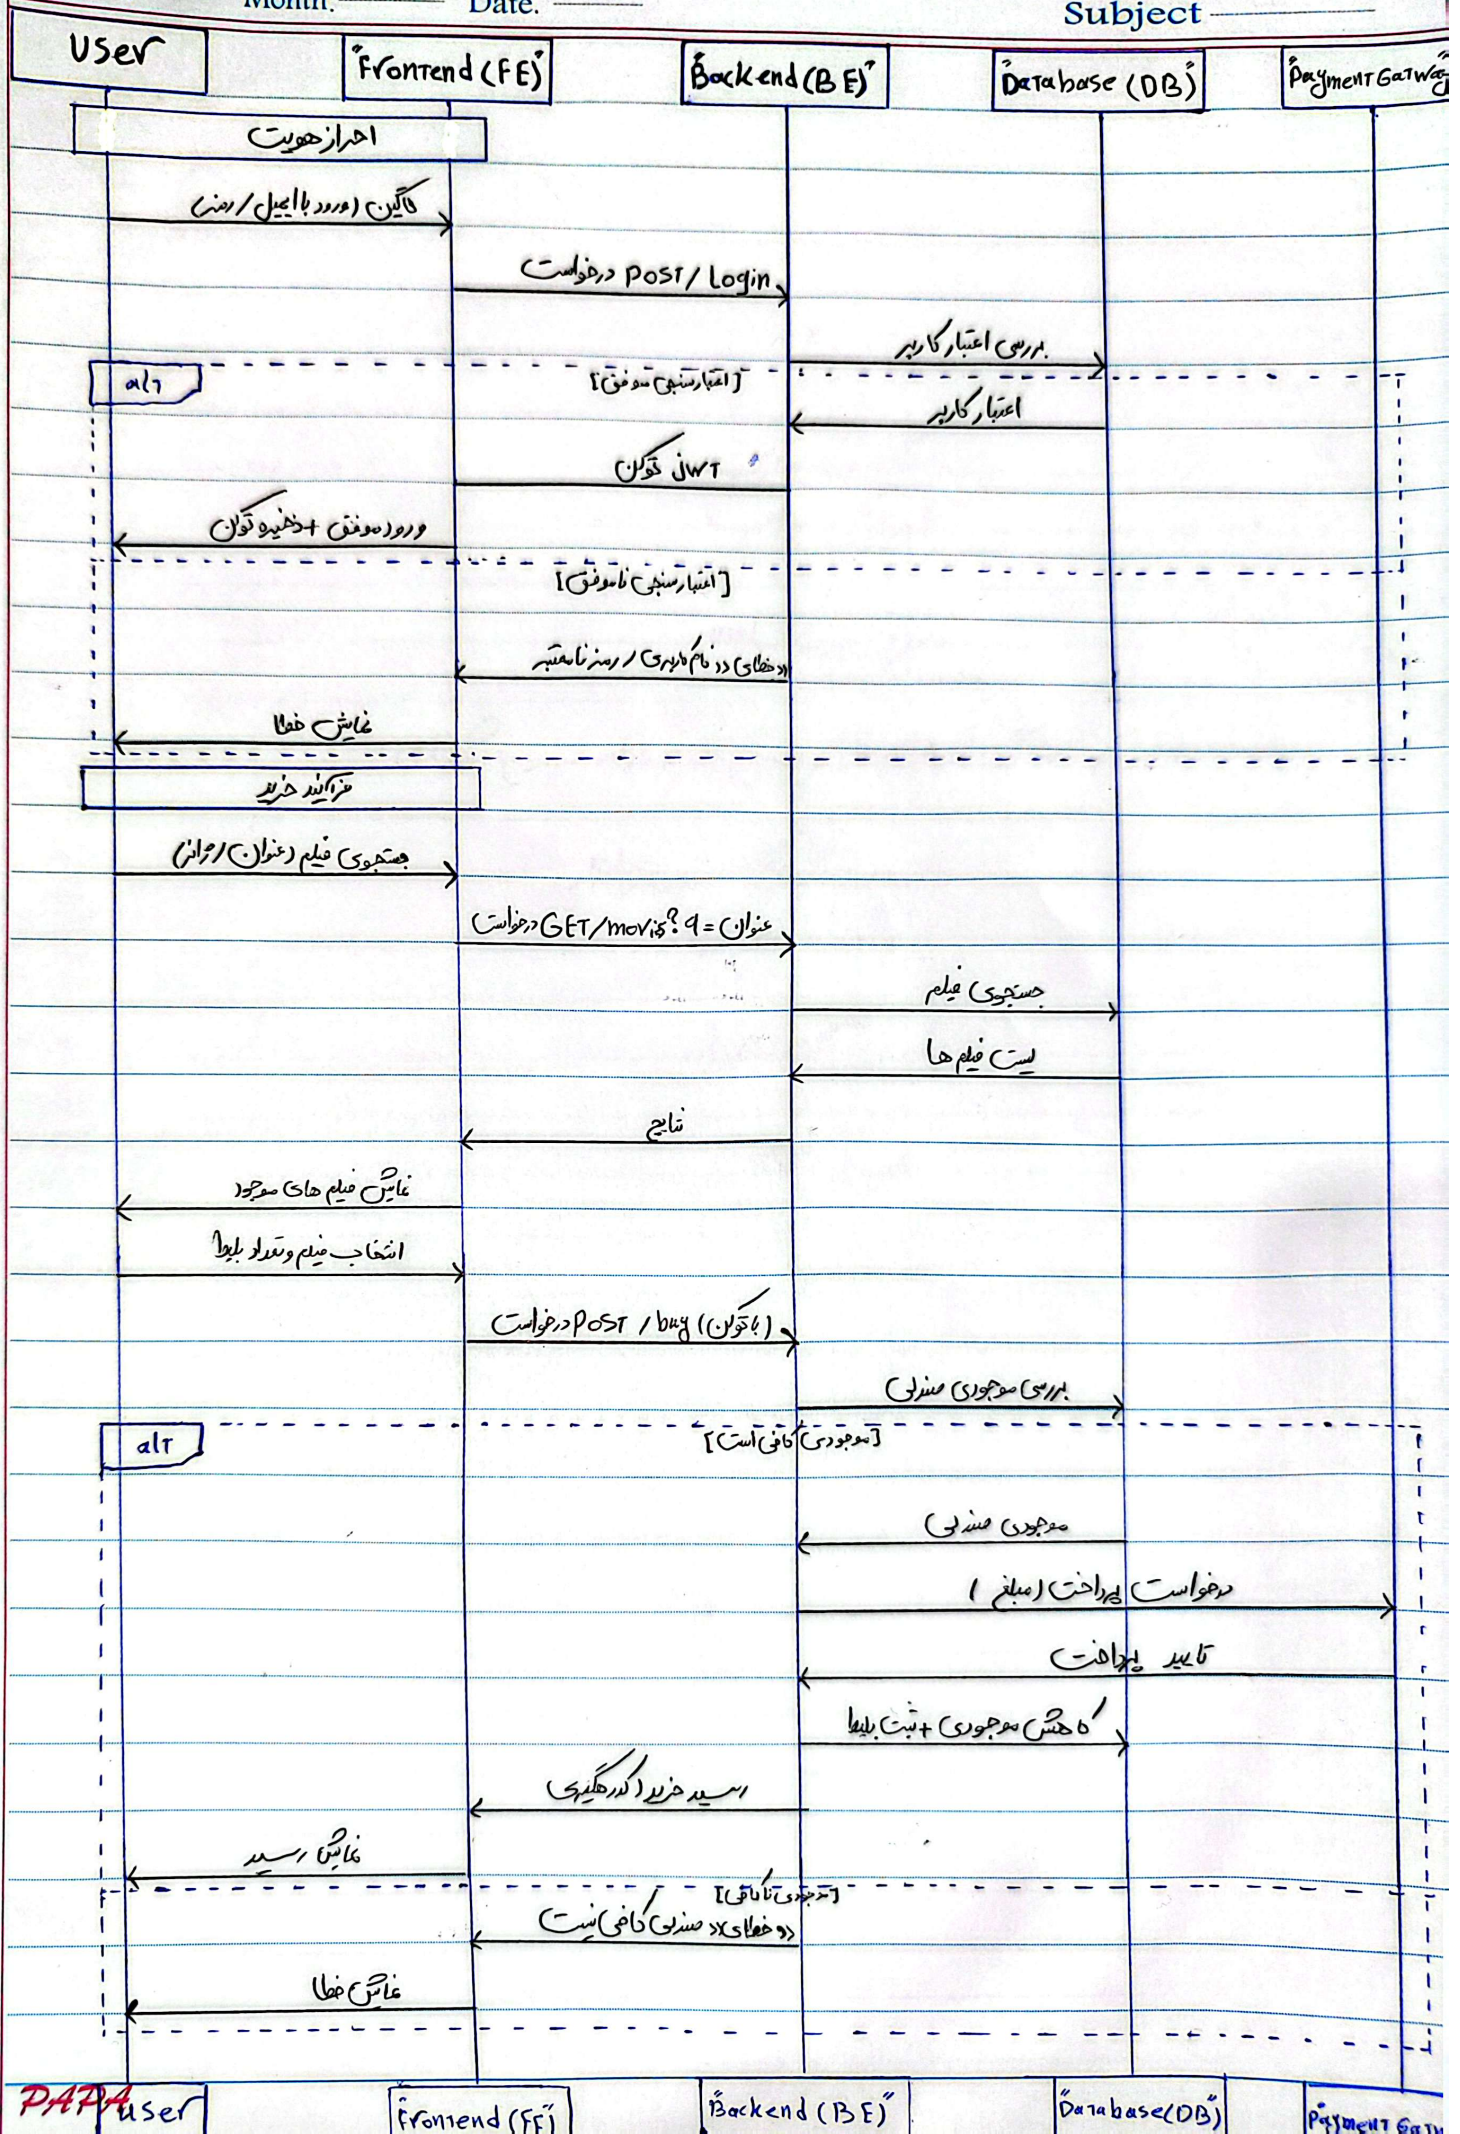 Month. Date.
Subject
User "Frontend (FE)" "Backend (BE)" "Database (DB)" "Payment Gatway
احراز هویت
لاگین (ورود با ایمیل / رمز)
درخواست POST / Login
بررسی اعتبار کاربر
alt
[اعتبارسنجی موفق]
اعتبار کاربر
توکن JWT
ورود موفق + ذخیره توکن
[اعتبارسنجی ناموفق]
خطای نام کاربری / رمز نامعتبر
نمایش خطا
فرآیند خرید
جستجوی فیلم (عنوان / ژانر)
درخواست GET/movis? q = عنوان
جستجوی فیلم
لیست فیلم ها
نتایج
نمایش فیلم های موجود
انتخاب فیلم و تعداد بلیط
درخواست POST / buy (با توکن)
بررسی موجودی صندلی
alt
[موجودی کافی است]
موجودی صندلی
درخواست پرداخت (مبلغ)
تایید پرداخت
کاهش موجودی + ثبت بلیط
رسید خرید (کد رهگیری
نمایش رسید
[موجودی ناکافی]
خطای صندلی کافی نیست
نمایش خطا
PAPA
user "Frontend (FE)" "Backend (BE)" "Database(DB)"